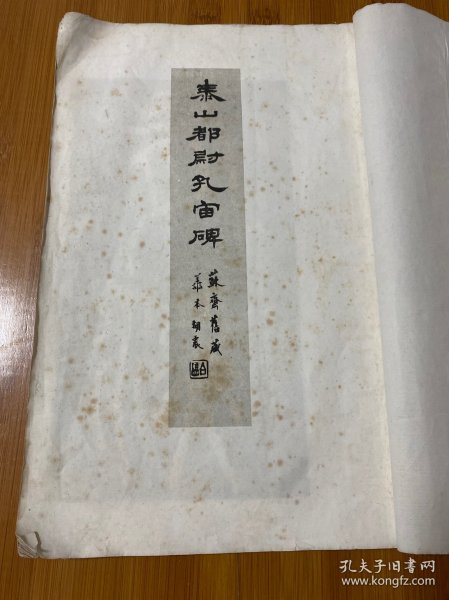 泰山都尉孔宙碑
蘇齋舊藏
孔夫子旧书网
www.kongfz.com